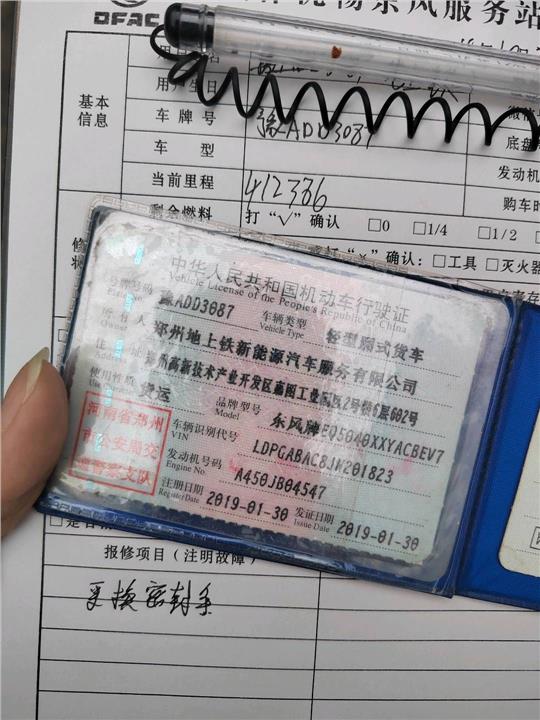 DFAC
东风服务站
用户生日
基本
信息
车牌号 豫ADD3087
底盘
车型
发动机
当前里程 412336
购车时
剩余燃料 打“√”确认 □0 □1/4 □1/2
确认：□工具 □灭火器
中华人民共和国机动车行驶证
Vehicle License of the People's Republic of China
号牌号码 豫ADD3087 车辆类型 轻型厢式货车
Plate No. Vehicle Type
所有人 郑州地上铁新能源汽车服务有限公司
Owner
住址 郑州高新技术产业开发区嘉图工业园区2号楼6层602号
Address
使用性质 货运 品牌型号 东风牌EQ5040XXYACBEV7
Use Character Model
河南省郑州
市公安局交
通警察支队
车辆识别代号 LDPGABAC8JN201823
VIN
发动机号码 A450JB04547
Engine No.
注册日期 2019-01-30 发证日期 2019-01-30
Register Date Issue Date
报修项目（注明故障）
更换密封条